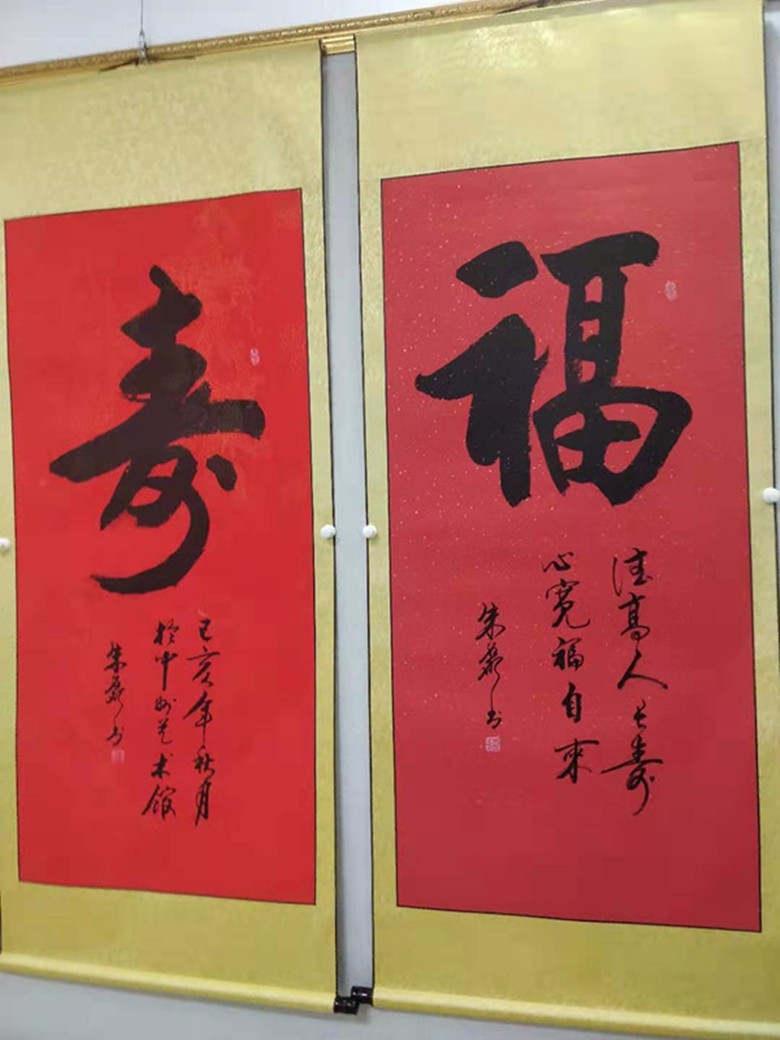 福
德高人长寿
心宽福自來
朱磊书
寿
己亥年秋月
於中州艺术馆
朱磊书